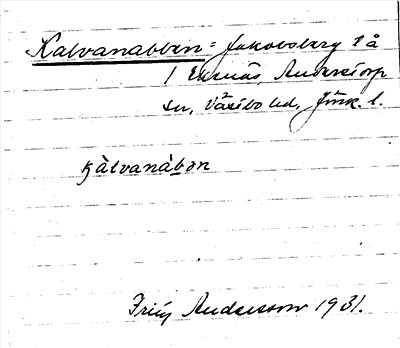 Kalvanabben = Jakobsberg 1 å
1 Ekenäs, Anderstorp
sn, Västbo hd, Jönk. l.
kàlvanàbøn
Andersson 1931.